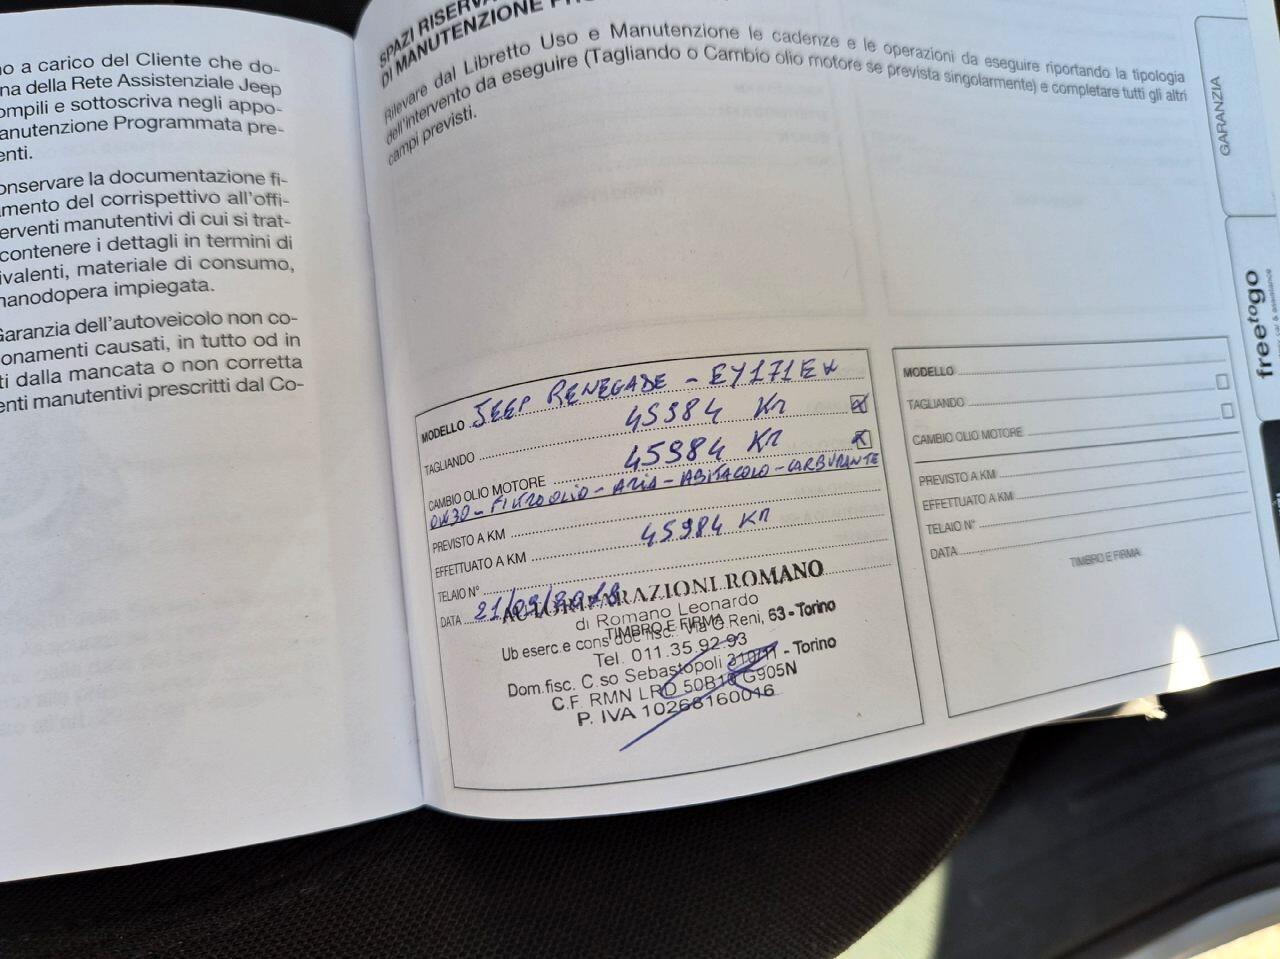 no a carico del Cliente che do-
na della Rete Assistenziale Jeep
ompili e sottoscriva negli appo-
anutenzione Programmata pre-
enti.
onservare la documentazione fi-
amento del corrispettivo all'offi-
erventi manutentivi di cui si trat-
contenere i dettagli in termini di
ivalenti, materiale di consumo,
manodopera impiegata.
Garanzia dell'autoveicolo non co-
onamenti causati, in tutto od in
ti dalla mancata o non corretta
enti manutentivi prescritti dal Co-
SPAZI RISERVA
DI MANUTENZIONE
Rilevare dal Libretto Uso e Manutenzione le cadenze e le operazioni da eseguire riportando la tipologia
dell'intervento da eseguire (Tagliando o Cambio olio motore se prevista singolarmente) e completare tutti gli altri
campi previsti.
GARANZIA
freetogo
MODELLO JEEP RENEGADE - EY171EX
TAGLIANDO 45984 KM
CAMBIO OLIO MOTORE 45984 KM
0W30 - FILTRO OLIO - ARIA - ABITACOLO - CARBURANTE
PREVISTO A KM
EFFETTUATO A KM 45984 KM
TELAIO N°
DATA 21/09/2018
AUTORIPARAZIONI ROMANO
di Romano Leonardo
TIMBRO E FIRMA
Ub eserc.e cons doc fisc. Via G.Reni, 63 - Torino
Tel. 011.35.92.93
Dom.fisc. C.so Sebastopoli 310/11 - Torino
C.F. RMN LRD 50B18 G905N
P. IVA 10268160016
MODELLO
TAGLIANDO
CAMBIO OLIO MOTORE
PREVISTO A KM
EFFETTUATO A KM
TELAIO N°
DATA
TIMBRO E FIRMA